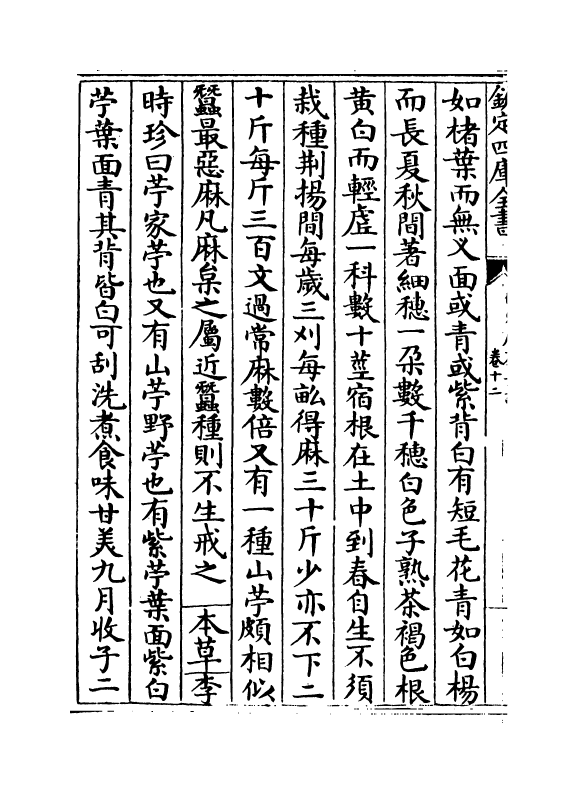 欽定四庫全書
卷十二
如楮葉而無义面或青或紫背白有短毛花青如白楊
而長夏秋間著細穗一朶數千穗白色子熟茶褐色根
黄白而輕虛一科數十莖宿根在土中到春自生不須
栽種荆揚間每歲三刈每畝得麻三十斤少亦不下二
十斤每斤三百文過常麻數倍又有一種山苧頗相似
蠶最惡麻凡麻枲之屬近蠶種則不生戒之 本草李
時珍曰苧家苧也又有山苧野苧也有紫苧葉面紫白
苧葉面青其背皆白可刮洗煮食味甘美九月收子二